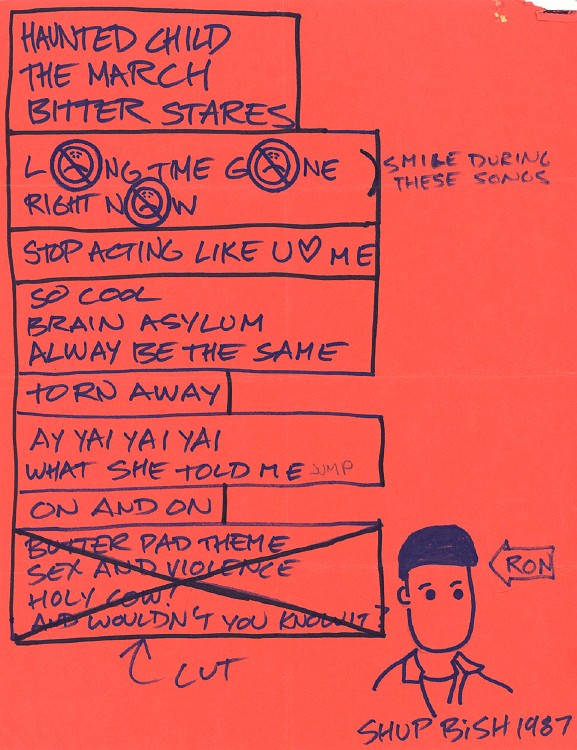 HAUNTED CHILD
THE MARCH
BITTER STARES
LONG TIME GONE
RIGHT NOW
SMILE DURING
THESE SONGS
STOP ACTING LIKE U ♡ ME
SO COOL
BRAIN ASYLUM
ALWAY BE THE SAME
TORN AWAY
AY YAI YAI YAI
WHAT SHE TOLD ME JUMP
ON AND ON
BUTTER PAD THEME
SEX AND VIOLENCE
HOLY COW!
AND WOULDN'T YOU KNOW IT?
CUT
RON
SHUP BiSH 1987